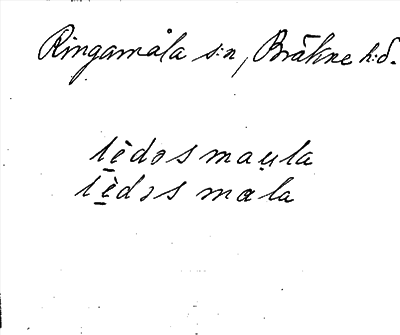 Ringamåla s:n, Bräkne h:d.
lèdosmau̯la
lèdɔsmala